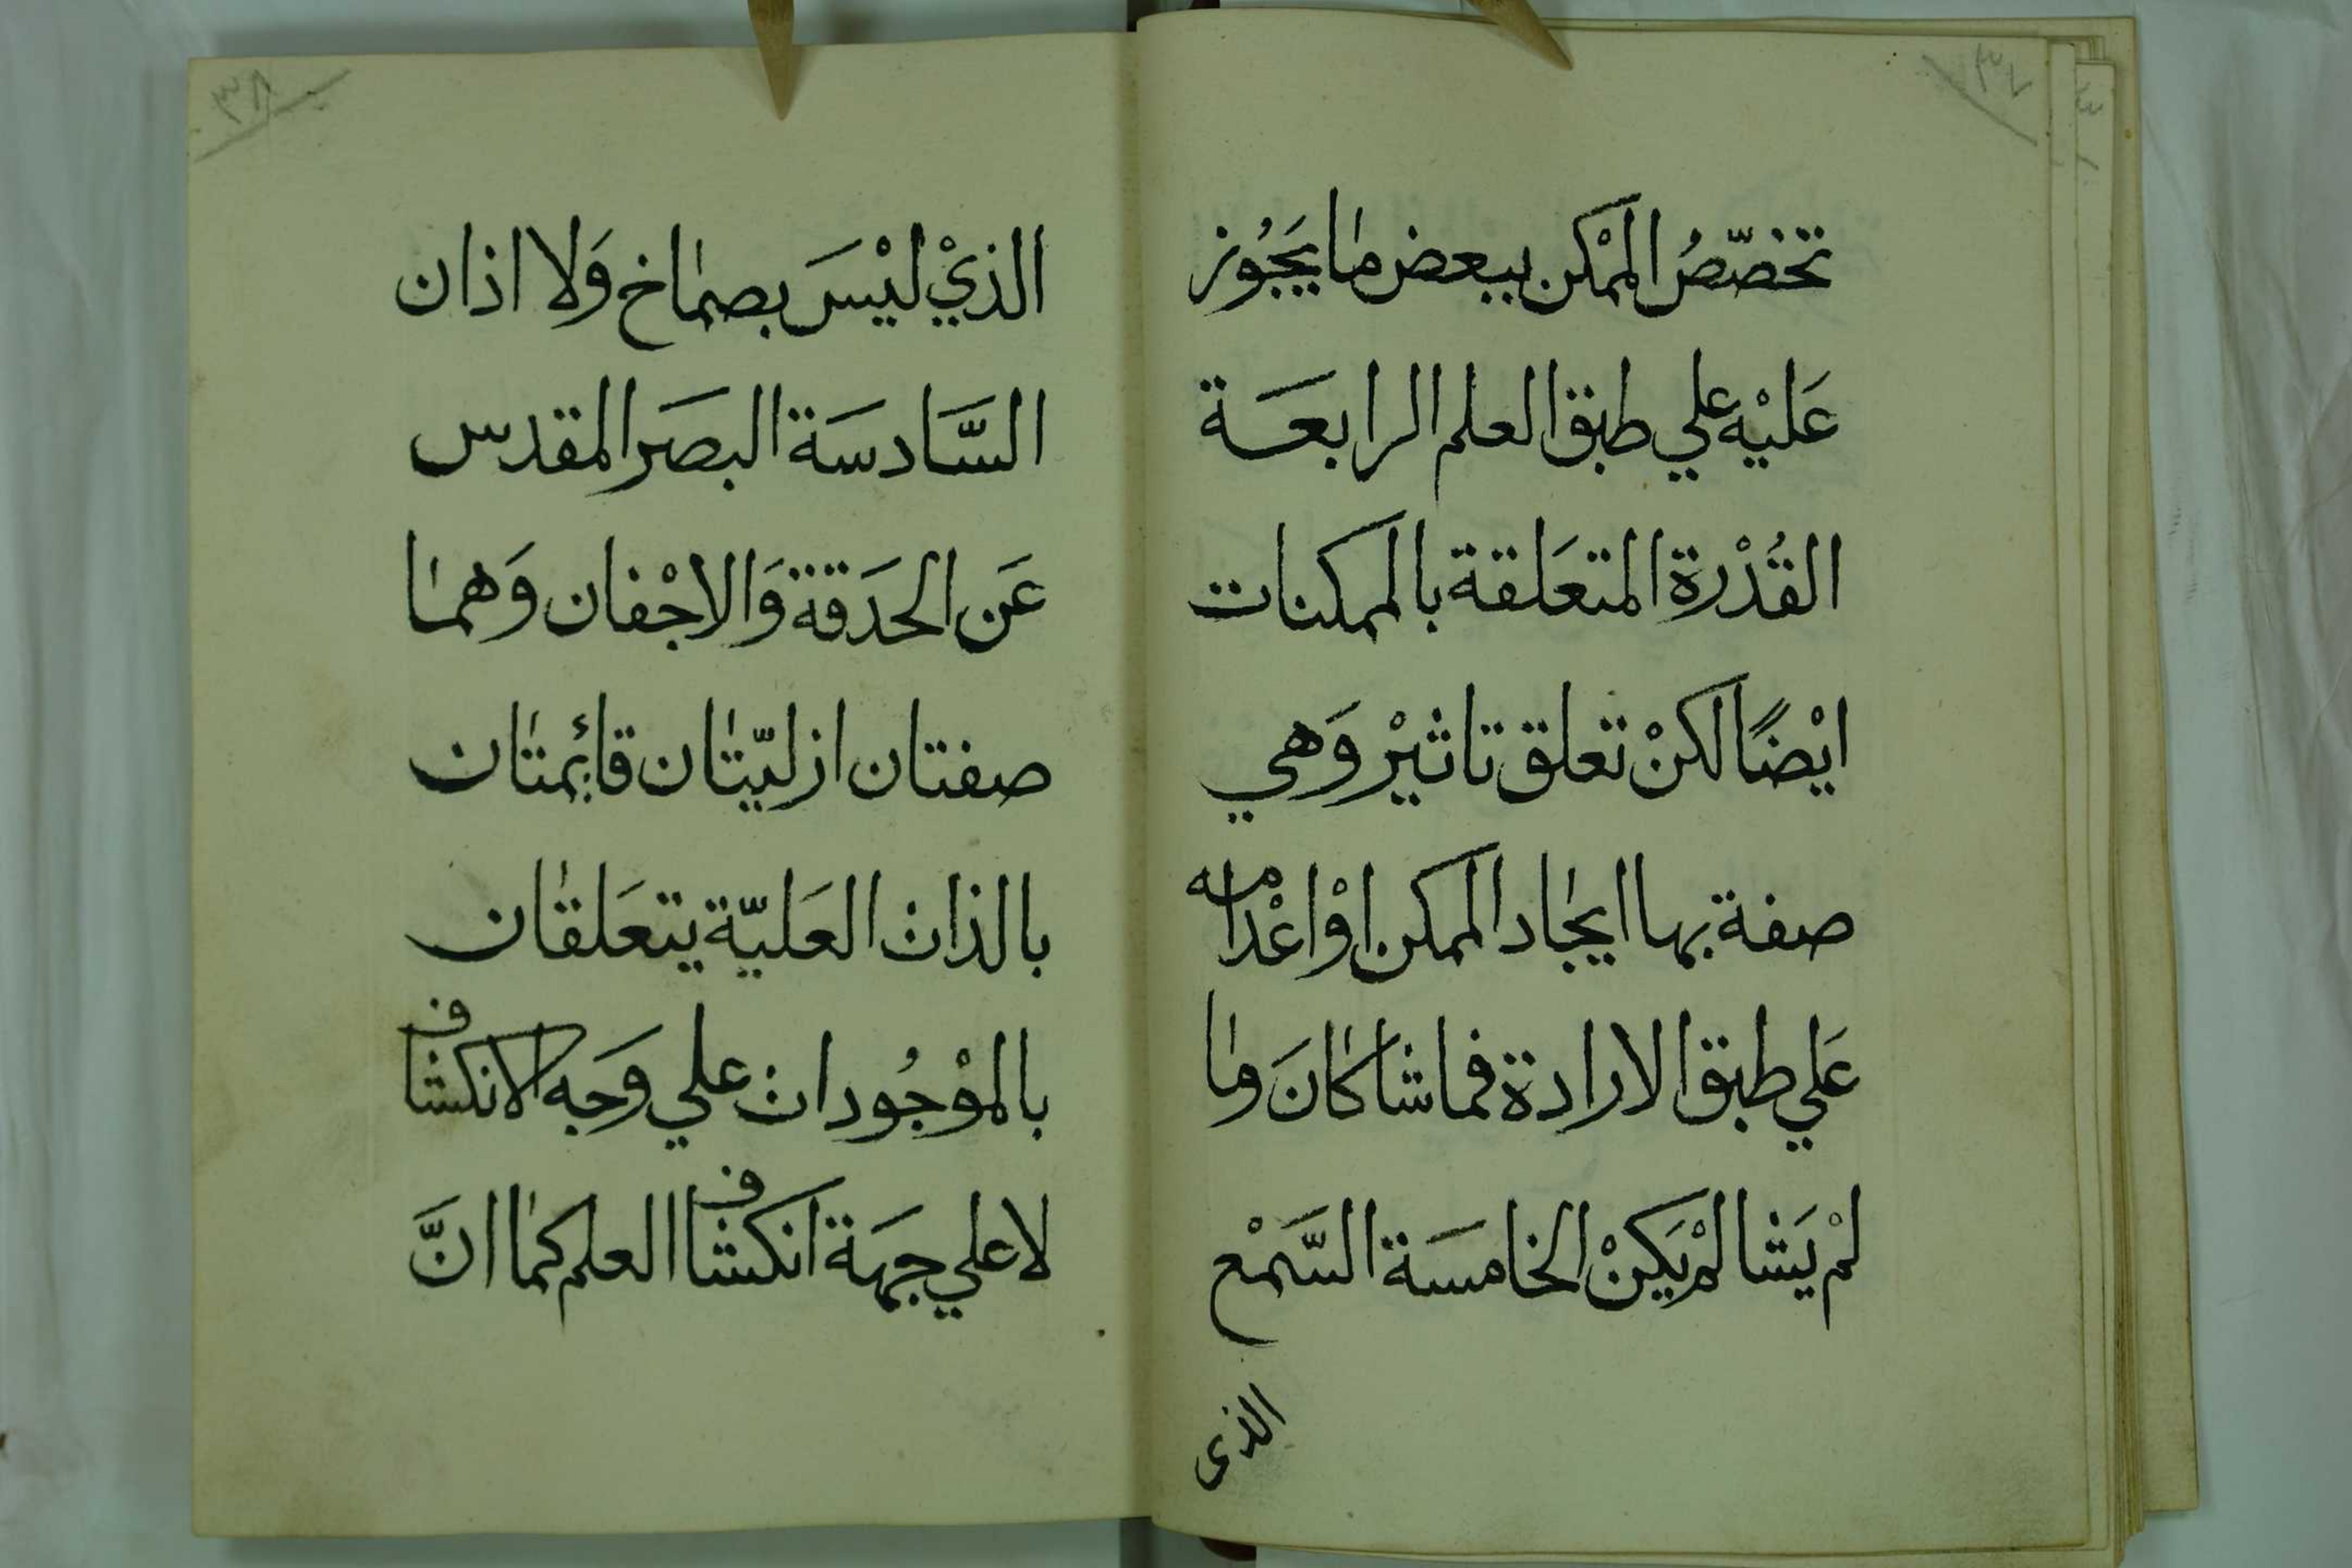 ٣٧
تخصّصُ الممْكن ببعض ما يَجُوز
عَليْه علي طبق العلم الرابعَة
القُدْرة المتعَلقة بالممكنات
ايْضًا لكنْ تعلق تاثيْر وَهي
صفة بها ايجاد الممكن اوْ اعْدامه
عَلي طبق الارادة فما شا كانَ وما
لمْ يَشا لمْ يَكنْ الخامسَة السَّمْع
الذى
٣٨
الذيْ ليْسَ بصماخ وَلا اذان
السَّادسَة البصَر المقدس
عَن الحَدَقة وَالاجْفان وَهما
صفتان ازليّتان قائمتان
بالذات العَليّة يتعَلقان
بالموْجُودات علي وَجه الانكشاف
لا علي جهَة انكشاف العلم كما انَّ